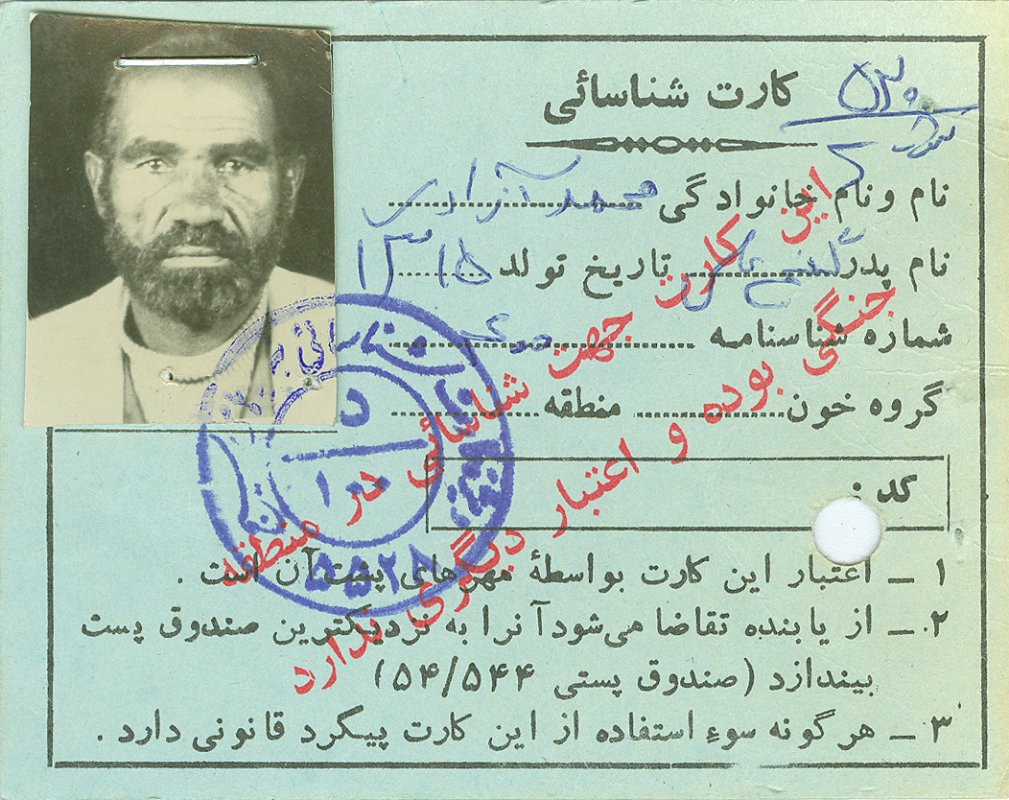 کارت شناسائی
۵۳۰
نام و نام خانوادگی محمد آزادی
نام پدر تاریخ تولد ۱۳۱۵
شماره شناسنامه
گروه خون منطقه
کد :
۱ ــ اعتبار این کارت بواسطهٔ مهرهای پشت آن است .
۲ ــ از یابنده تقاضا می‌شود آنرا به نزدیکترین صندوق پست
بیندازد (صندوق پستی ۵۴/۵۴۴)
۳ ــ هرگونه سوء استفاده از این کارت پیگرد قانونی دارد .
این کارت جهت شناسائی در منطقه
جنگی بوده و اعتبار دیگری ندارد
د
۱۰۰
۵۵۲۸